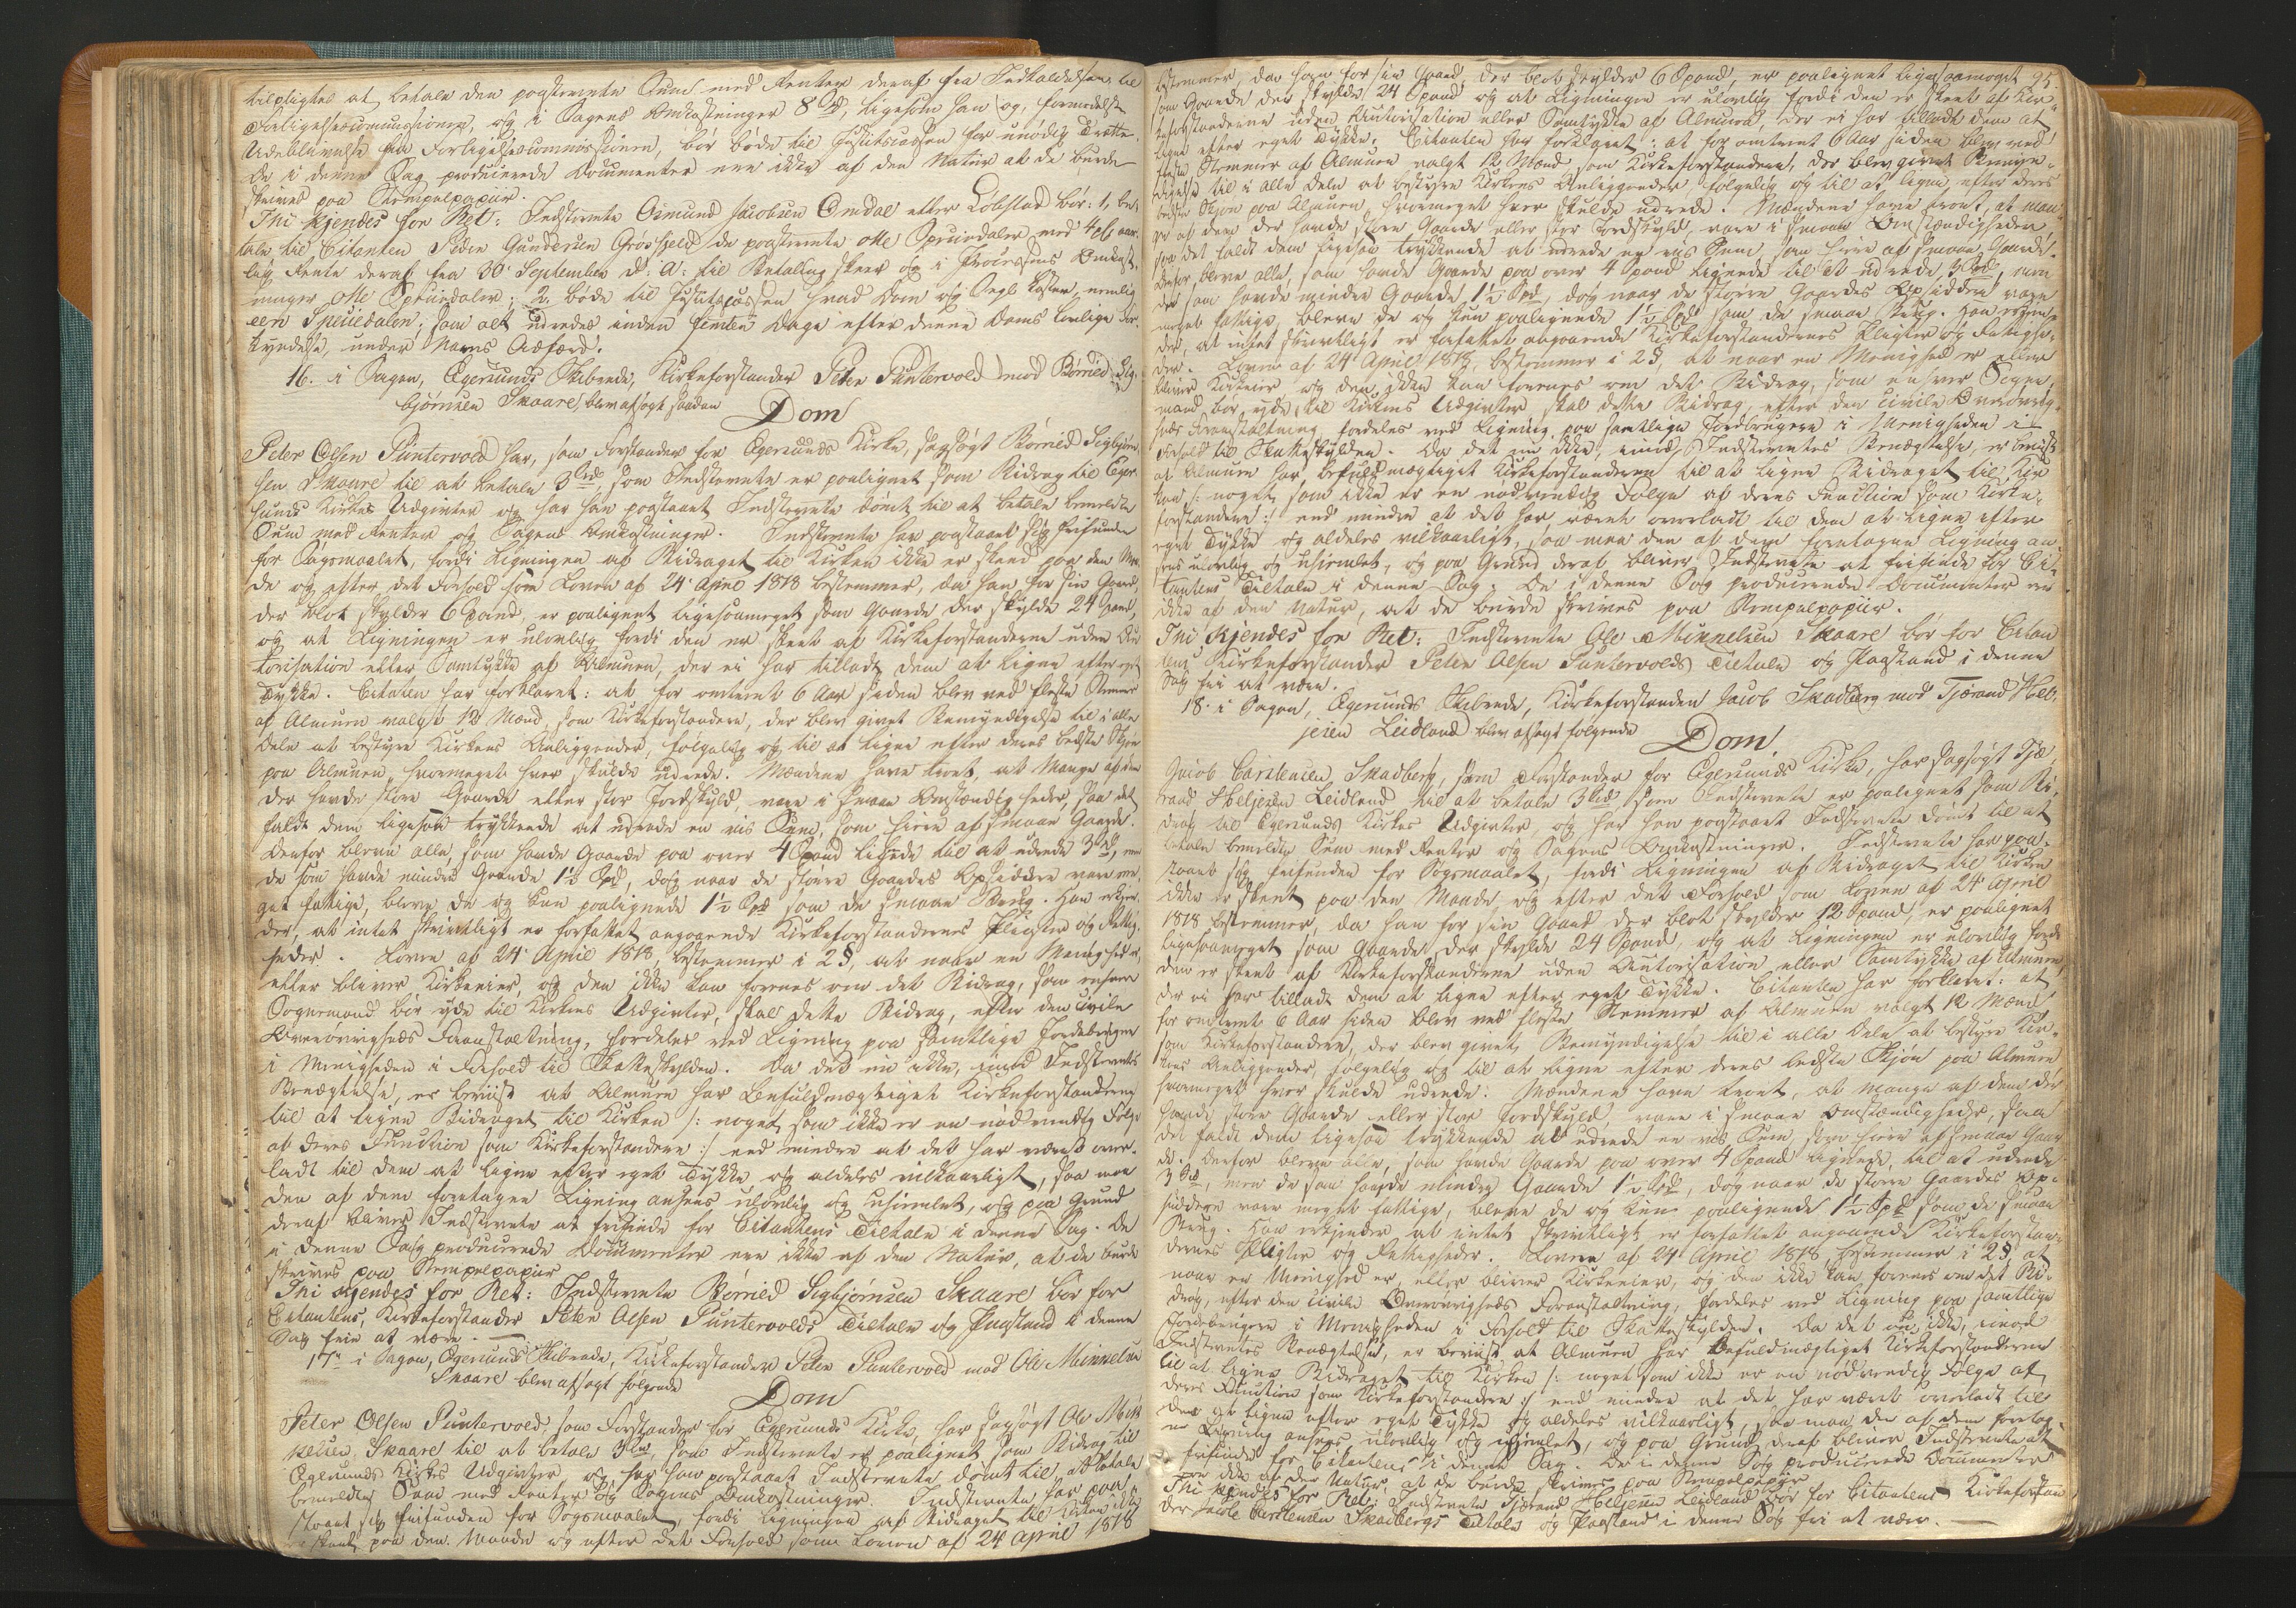 tilpligtes at betale den paastevnte Sum med Renter deraf fra Indkaldelsen til
Forligelsescommissionen, og i Sagens Omkostninger 8 Spd, ligesom han og, formedelst
Udeblivelse fra Forligelsescommissionen, bør bøde til Justitscassen for unødig Trætte.
De i denne Sag producerede Documenter ere ikke af den Natur at de burde
skrives paa Stempelpapiir.
Thi kjendes for Ret: Indstevnte Osmund Jacobsen Omdal eller Løbstad bør: 1, be-
tale til Citanten Peder Gundersen Grøsfjeld de paastevnte otte Speciedaler med 4 pC. aar-
lig Rente deraf fra 30 September d: A: til Betaling skeer og i Processens Omkost-
ninger otte Speciedaler; 2, bøde til Justitscassen hvad Dom og Segl koster, nemlig
een Speciedaler; som alt udredes inden femten Dage efter denne Doms lovlige For-
kyndelse, under Navns Adfærd.
16. i Sagen, Egersunds Skibrede, Kirkeforstander Peter Puntervold mod Børrild Sig-
bjørnsen Skaare, blev afsagt saadan
Dom
Peter Olsen Puntervold har, som Forstander for Egersunds Kirke, sagsøgt Børrild Sigbjørn-
sen Skaare til at betale 3 Spd, som Indstevnte er paalignet som Bidrag til Eger-
sunds Kirkes Udgivter og har han paastaaet Indstevnte dømt til at betale bemeldte
Sum med Renter og Sagens Omkostninger. Indstevnte har paastaaet sig frifunden
for Søgsmaalet, fordi Ligningen af Bidraget til Kirken ikke er skeed paa den Maa-
de og efter det Forhold som Loven af 24 April 1818 bestemmer, da han for sin Gaard,
der blot skylder 6 Spand, er paalignet ligesaameget som Gaarde der skylde 24 Spand,
og at Ligningen er ulovlig fordi den er skeet af Kirkeforstanderne uden Au-
torisation eller Samtykke af Almuen, der ei har tilladt dem at ligne efter eget
Tykke. Citanten har forklaret: at for omtrent 6 Aar siden blev ved fleste Stemmer
af Almuen valgt 12 Mænd, som Kirkeforstandere, der blev givet Bemyndigelse til i alle
Dele at bestyre Kirkens Anliggender, følgelig og til at ligne efter deres bedste Skjøn
paa Almuen, hvormeget hver skulde udrede. Mændene have troet, at Mange af dem
der havde store Gaarde eller stor Jordskyld, vare i smaae Omstændigheder, saa det
faldt dem ligesaa trykkende at udrede en vis Sum, som Eiere af smaae Gaarde.
Derfor bleve alle, som havde Gaarde paa over 4 Spand lignede til at udrede 3 Spd, men
de som havde mindre Gaarde 1½ Spd, dog naar de større Gaardes Opsiddere vare me-
get fattige, bleve de og kun paalignede 1½ Spd som de smaae Brug. Han erkjen-
der, at intet skrivtligt er forfattet angaaende Kirkeforstandernes Pligter og Rettig-
heder. Loven af 24 April 1818, bestemmer i 2 §, at naar en Menighed er,
eller bliver Kirkeeier, og den ikke kan forenes om det Bidrag, som enhver
Sognemand bør yde til Kirkens Udgivter, skal dette Bidrag, efter den Civile
Overøvrigheds Foranstaltning, fordeles ved Ligning paa samtlige Jordbrugere
i Menigheden i Forhold til Skatteskylden. Da det nu ikke, imod Indstevntes
Benægtelse, er beviist at Almuen har befuldmægtiget Kirkeforstanderne
til at ligne Bidraget til Kirken /: noget som ikke er en nødvendig Følge
af deres Function som Kirkeforstandere :/ end mindre at det har været over-
ladt til dem at ligne efter eget Tykke og aldeles vilkaarligt, saa maa
den af dem foretagne Ligning ansees ulovlig og uhjemlet, og paa Grund
deraf bliver Indstevnte at frifinde for Citantens Tiltale i denne Sag. De
i denne Sag producerede Documenter ere ikke af den Natur, at de burde
skrives paa Stempelpapiir
Thi kjendes for Ret: Indstevnte Børrild Sigbjørnsen Skaare bør for
Citantens, Kirkeforstander Peter Olsen Puntervolds Tiltale og Paastand i denne
Sag frie at være.
17. i Sagen, Egersunds Skibrede, Kirkeforstander Peter Puntervold mod Ole Mikkelsen
Skaare blev afsagt følgende
Dom
Peter Olsen Puntervold, som Forstander for Egersunds Kirke, har sagsøgt Ole Mik-
kelsen Skaare til at betale 3 Spd, som Indstevnte er paalignet som Bidrag til
Egersunds Kirkes Udgivter og har han paastaaet Indstevnte dømt til at betale
bemeldte Sum med Renter og Sagens Omkostninger. Indstevnte har paa-
staaet sig frifunden for Søgsmaalet, fordi Ligningen af Bidraget til Kirken ikke
er skeet paa den Maade og efter det Forhold som Loven af 24 April 1818
95.
bestemmer, da han for sin Gaard, der blot skylder 6 Spand, er paalignet ligesaameget
som Gaarde der skylde 24 Spand og at Ligningen er ulovlig fordi den er skeet af Kir-
keforstanderne uden Autorisation eller Samtykke af Almuen, der ei har tilladt dem at
ligne efter eget Tykke. Citanten har forklaret: at for omtrent 6 Aar siden blev ved
fleste Stemmer af Almuen valgt 12 Mænd som Kirkeforstandere, der blev givet Bemyn-
digelse til i alle Dele at bestyre Kirkens Anliggender, følgelig og til at ligne efter deres
bedste Skjøn paa Almuen, hvormeget hver skulde udrede. Mændene have troet, at man-
ge af dem der havde store Gaarde eller stor Jordskyld, vare i smaae Omstændigheder,
saa det faldt dem ligesaa trykkende at udrede en vis Sum som Eiere af smaae Gaarde.
Derfor bleve alle, som havde Gaarde paa over 4 Spand lignede til at udrede 3 Spd, men
de som havde mindre Gaarde 1½ Spd, dog naar de større Gaardes Opsiddere vare
meget fattige, bleve de og kun paalignede 1½ Spd som de smaae Brug. Han erkjen-
der, at intet skrivtligt er forfattet angaaende Kirkeforstandernes Pligter og Rettighe-
der. Loven af 24 April 1818, bestemmer i 2 §, at naar en Menighed er eller
bliver Kirkeeier og den ikke kan forenes om det Bidrag, som enhver Sogne-
mand bør yde til Kirkens Udgivter skal dette Bidrag, efter den Civile Overøvrig-
heds Foranstaltning, fordeles ved Ligning paa samtlige Jordbrugere i Menigheden i
Forhold til Skatteskylden. Da det nu ikke, imod Indstevntes Benægtelse, er beviist
at Almuen har befuldmægtiget Kirkeforstanderne til at ligne Bidraget til Kir-
ken /: noget som ikke er en nødvendig Følge af deres Function som Kirke-
forstandere :/ end mindre at det har været overladt til dem at ligne efter
eget Tykke og aldeles vilkaarligt, saa maa den af dem foretagne Ligning an-
sees ulovlig og uhjemlet, og paa Grund deraf bliver Indstevnte at frifinde for Ci-
tantens Tiltale i denne Sag. De i denne Sag producerede Documenter ere
ikke af den Natur, at de burde skrives paa Stempelpapiir.
Thi kjendes for Ret: Indstevnte Ole Mikkelsen Skaare bør for Citan-
tens Kirkeforstander Peter Olsen Puntervolds Tiltale og Paastand i denne
Sag fri at være.
18. i Sagen, Egersunds Skibrede, Kirkeforstander Jacob Skadberg mod Tjærand Hel-
jesen Leidland blev afsagt følgende
Dom.
Jacob Carstensen Skadberg, som Forstander for Egersunds Kirke, har sagsøgt Tjæ-
rand Heljesen Leidland til at betale 3 Spd, som Indstevnte er paalignet som Bi-
drag til Egersunds Kirkes Udgivter, og har han paastaaet Indstevnte dømt til at
betale bemeldte Sum med Renter og Sagens Omkostninger. Indstevnte har paa-
staaet sig frifunden for Søgsmaalet, fordi Ligningen af Bidraget til Kirken
ikke er skeet paa den Maade og efter det Forhold som Loven af 24 April
1818 bestemmer, da han for sin Gaard der blot skylder 12 Spand, er paalignet
ligesaameget som Gaarde der skylde 24 Spand, og at Ligningen er ulovlig fordi
den er skeet af Kirkeforstanderne uden Autorisation eller Samtykke af Almuen,
der ei har tilladt dem at ligne efter eget Tykke. Citanten har forklaret: at
for omtrent 6 Aar siden blev ved fleste Stemmer af Almuen valgt 12 Mænd
som Kirkeforstandere, der blev givet Bemyndigelse til i alle Dele at bestyre Kir-
kens Anliggender, følgelig og til at ligne efter deres bedste Skjøn paa Almuen
hvormeget hver skulde udrede. Mændene have troet, at mange af dem der
havde store Gaarde eller stor Jordskyld, vare i smaae Omstændigheder, saa
det faldt dem ligesaa trykkende at udrede en vis Sum, som Eiere af smaae Gaar-
de. Derfor bleve alle, som havde Gaarde paa over 4 Spand lignede, til at udrede
3 Spd, men de som havde mindre Gaarde 1½ Spd, dog naar de større Gaardes Op-
siddere vare meget fattige, bleve de og kun paalignede 1½ Spd som de smaae
Brug. Han erkjender at intet skrivtligt er forfattet angaaende Kirkeforstan-
dernes Pligter og Rettigheder. Loven af 24 April 1818, bestemmer i 2 §, at
naar en Menighed er, eller bliver Kirkeeier, og den ikke kan forenes om det Bi-
drag, efter den Civile Overøvrigheds Foranstaltning, fordeles ved Ligning paa samtlige
Jordbrugere i Menigheden i Forhold til Skatteskylden. Da det nu ikke, imod
Indstevntes Benægtelse, er beviist at Almuen har befuldmægtiget Kirkeforstanderne
til at ligne Bidraget til Kirken /: noget som ikke er en nødvendig Følge af
deres Function som Kirkeforstandere :/ end mindre at det har været overladt til
dem at ligne efter eget Tykke og aldeles vilkaarligt, saa maa den af dem foretag-
ne Ligning ansees ulovlig og uhjemlet, og paa Grund deraf bliver Indstevnte at
frifinde for Citantens i denne Sag. De i denne Sag producerede Documenter
ere ikke af den Natur, at de burde skrives paa Stempelpapiir
Thi kjendes for Ret: Indstevnte Tjærand Heljesen Leidland bør for Citantens Kirkeforstan-
der Jacob Carstensen Skadbergs Tiltale og Paastand i denne Sag fri at være.